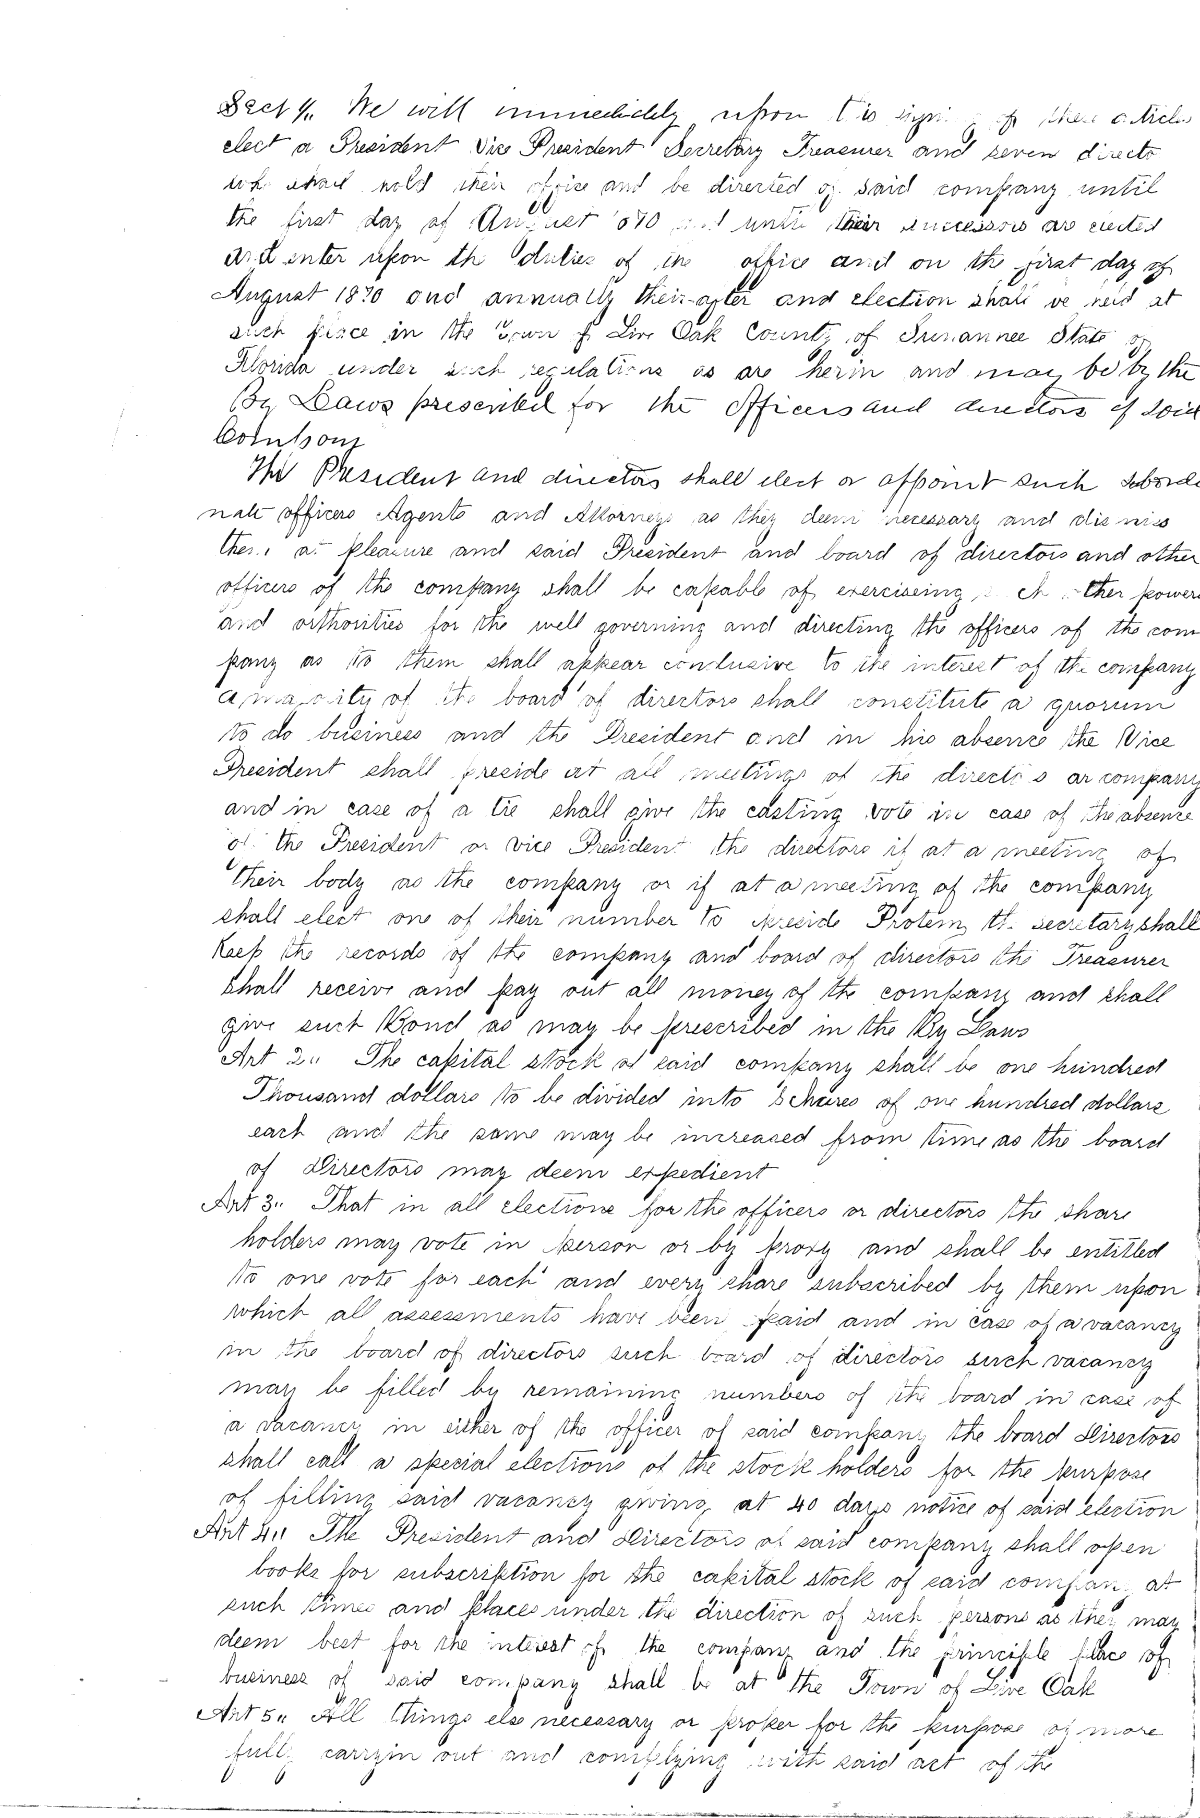 Sect 4. We will immediately upon signing of these articles
elect a President Vice President Secretary Treasurer and seven directo
who shall hold their office and be directed of said company until
the first day of August 1870 and until their successors are elected
and enter upon the duties of the office and on the first day of
August 1870 and annually their-after and election shall be held at
such place in the Town of Live Oak County of Suwannee State of
Florida under such regulations as are herin and may be by the
By Laws prescribed for the officers and directors of said
Company
The President and directors shall elect or appoint such subordi
nate officers Agents and Attorneys as they deem necessary and dismiss
them at pleasure and said President and board of directors and other
officers of the company shall be capable of exerciseing such other powers
and orthorities for the well governing and directing the officers of the com
pany as to them shall appear conclusive to the interest of the company
a majority of the board of directors shall constitute a quorum
to do business and the President and in his absence the Vice
President shall preside at all meetings of the directors or company
and in case of a tie shall give the casting vote in case of the absence
of the President or vice President the directors if at a meeting of
their body as the company or if at a meeting of the company
shall elect one of their number to preside Protem the secretary shall
Keep the records of the company and board of directors the Treasurer
shall receive and pay out all money of the company and shall
give such Bond as may be prescribed in the By Laws
Art 2.. The capital stock of said company shall be one hundred
Thousand dollars to be divided into Schares of one hundred dollars
each and the same may be increased from time as the board
of Directors may deem expedient
Art 3.. That in all elections for the officers or directors the share
holders may vote in person or by proxy and shall be entitled
to one vote for each and every share subscribed by them upon
which all assessments have been paid and in case of a vacancy
in the board of directors such board of directors such vacancy
may be filled by remaining numbers of the board in case of
a vacancy in either of the officer of said company the board Directors
shall call a special elections of the stock holders for the purpose
of filling said vacancy giving at 40 days notice of said election
Art 4.. The President and Directors of said company shall open
books for subscription for the capital stock of said company at
such times and places under the direction of such persons as they may
deem best for the interest of the company and the principle place of
business of said company shall be at the Town of Live Oak
Art 5.. All things else necessary or proper for the purpose of more
fully carryin out and complying with said act of the